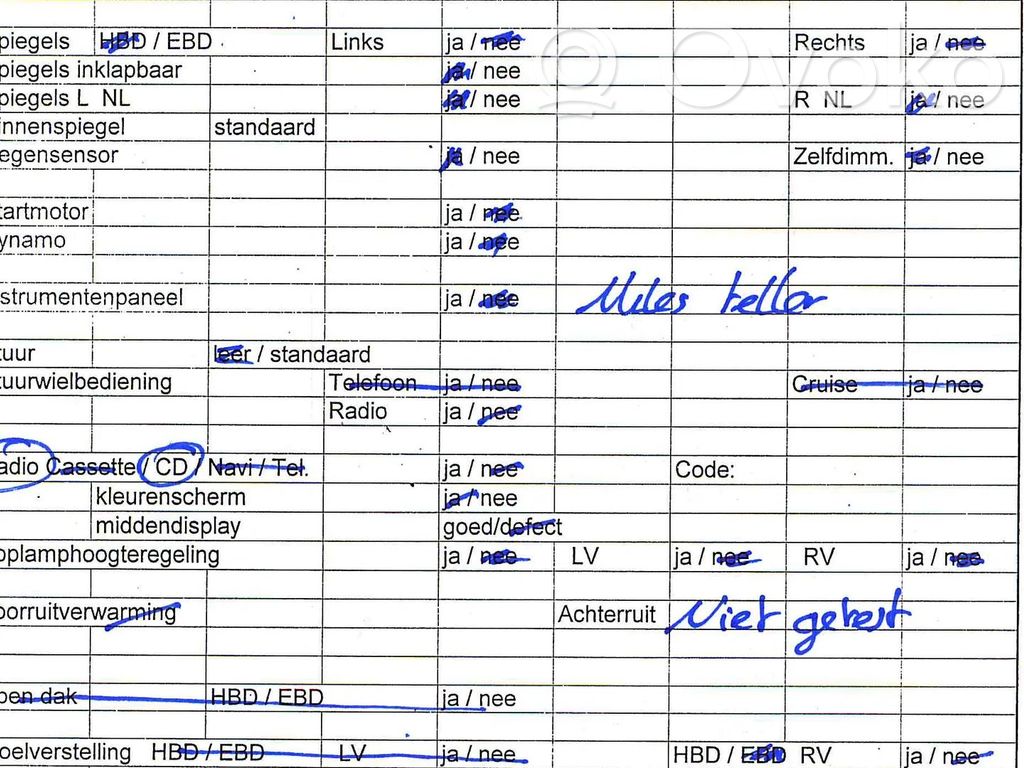 piegels HBD / EBD Links ja / nee Rechts ja / nee
piegels inklapbaar ja / nee
piegels L NL ja / nee R NL ja / nee
innenspiegel standaard
egensensor ja / nee Zelfdimm. ja / nee
tartmotor ja / nee
ynamo ja / nee
strumentenpaneel ja / nee Miles teller
tuur leer / standaard
tuurwielbediening Telefoon ja / nee Cruise ja / nee
Radio ja / nee
adio Cassette / CD / Navi / Tel. ja / nee Code:
kleurenscherm ja / nee
middendisplay goed/defect
oplamphoogteregeling ja / nee LV ja / nee RV ja / nee
oorruitverwarming Achterruit Niet getest
pen dak HBD / EBD ja / nee
oelverstelling HBD / EBD LV ja / nee HBD / EBD RV ja / nee
Ovoko